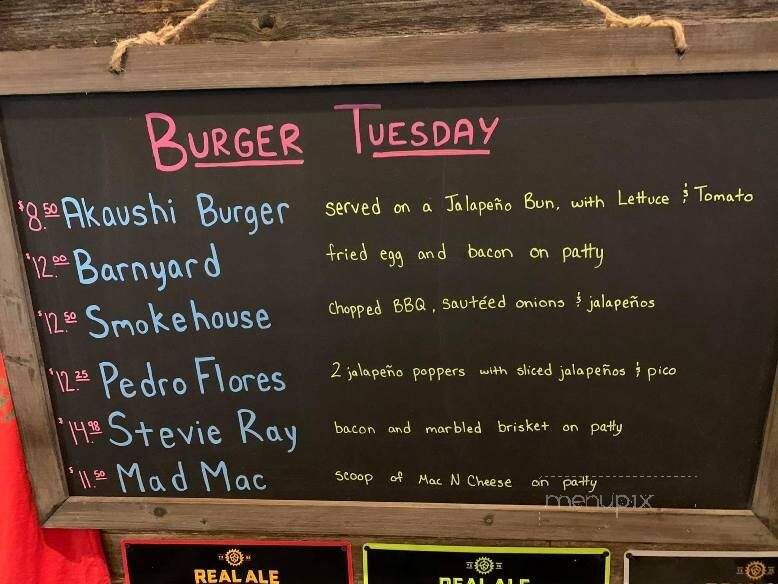 BURGER TUESDAY
$8.50 Akaushi Burger served on a Jalapeño Bun, with Lettuce & Tomato
$12.00 Barnyard fried egg and bacon on patty
$12.50 Smokehouse Chopped BBQ, sautéed onions & jalapeños
$12.25 Pedro Flores 2 jalapeño poppers with sliced jalapeños & pico
$14.98 Stevie Ray bacon and marbled brisket on patty
$11.50 Mad Mac scoop of Mac N Cheese on patty
menupix
REAL ALE
REAL ALE